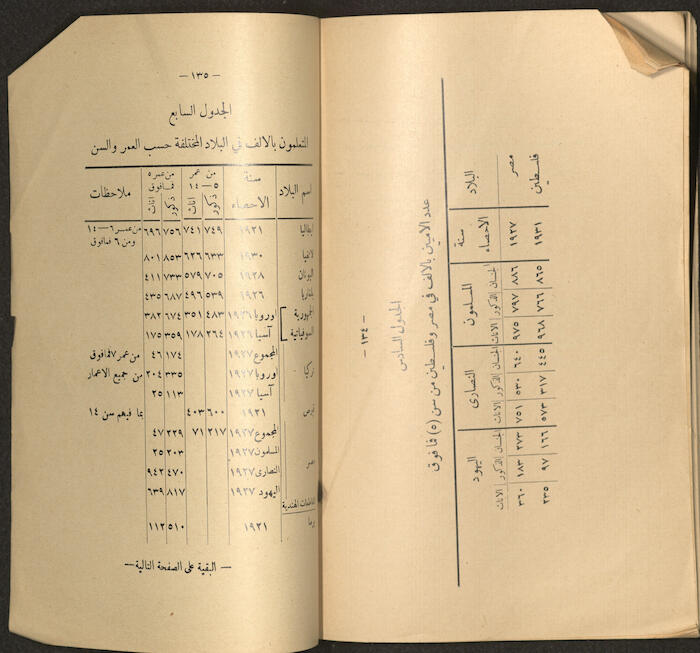 — ١٣٤ —
الجدول السادس
عدد الاميين بالالف في مصر وفلسطين من سن (٥) فما فوق
البلاد سنة الاحصاء المسلمون النصارى اليهود
الجنسان الذكور الاناث الجنسان الذكور الاناث الجنسان الذكور الاناث
مصر ١٩٢٧ ٨٨٦ ٧٩٧ ٩٧٥ ٦٤٠ ٥٣٠ ٧٥١ ٢٧٣ ١٨٣ ٣٦٠
فلسطين ١٩٣١ ٨٦٥ ٧٦٦ ٩٦٨ ٤٤٥ ٣١٧ ٥٧٣ ١٦٦ ٩٧ ٢٣٥
— ١٣٥ —
الجدول السابع
المتعلمون بالالف في البلاد المختلفة حسب العمر والسن
اسم البلاد سنة الاحصاء من عمر ٥—١٤ من عمر ٥ فما فوق ملاحظات
ذكور اناث ذكور اناث
ايطاليا ١٩٢١ ٧٤٩ ٧٤١ ٧٥٦ ٦٩٦ من عمر ٦—١٤
ومن ٦ فما فوق
لاتفيا ١٩٣٠ ٦٣٣ ٦٢٦ ٨٥٣ ٨٠١
اليونان ١٩٢٨ ٧٠٥ ٥٧٩ ٧٣٣ ٤١١
بلغاريا ١٩٢٦ ٥٣٩ ٤٩٦ ٦٨٧ ٤٣٥
الجمهورية اوروبا ١٩٢٦ ٤٨٣ ٣٥١ ٦٧٤ ٣٨٢
السوفياتية آسيا ١٩٢٦ ٢٦٤ ١٧٨ ٣٥٩ ١٧٥
المجموع ١٩٢٧ ١٧٤ ٤٦ من عمر ٧ فما فوق
تركيا اوروبا ١٩٢٧ ٣٣٥ ٢٠٤ من جميع الاعمار
آسيا ١٩٢٧ ١١٣ ٢٥
قبرص ١٩٢١ ٦٠٠ ٤٠٣ بما فيهم سن ١٤
المجموع ١٩٢٧ ٢١٧ ٧١ ٢٢٩ ٤٧
المسلمون ١٩٢٧ ٢٠٣ ٢٥
مصر النصارى ١٩٢٧ ٤٧٠ ٩٤٢
اليهود ١٩٢٧ ٨١٧ ٦٣٩
المقاطعات الهندية
برما ١٩٢١ ٥١٠ ١١٢
— البقية على الصفحة التالية —